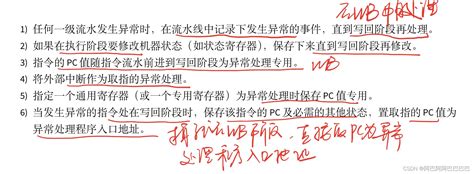 在WB中处理
1) 任何一级流水发生异常时，在流水线中记录下发生异常的事件，直到写回阶段再处理。
2) 如果在执行阶段要修改机器状态（如状态寄存器），保存下来直到写回阶段再修改。
3) 指令的 PC 值随指令流水前进到写回阶段为异常处理专用。 WB
4) 将外部中断作为取指的异常处理。
5) 指定一个通用寄存器（或一个专用寄存器）为异常处理时保存 PC 值专用。
6) 当发生异常的指令处在写回阶段时，保存该指令的 PC 及必需的其他状态，置取指的 PC 值为
异常处理程序入口地址。
WB阶段，直接取PC为异常
处理程序入口地址
CSDN @阿巴阿阿巴巴巴巴